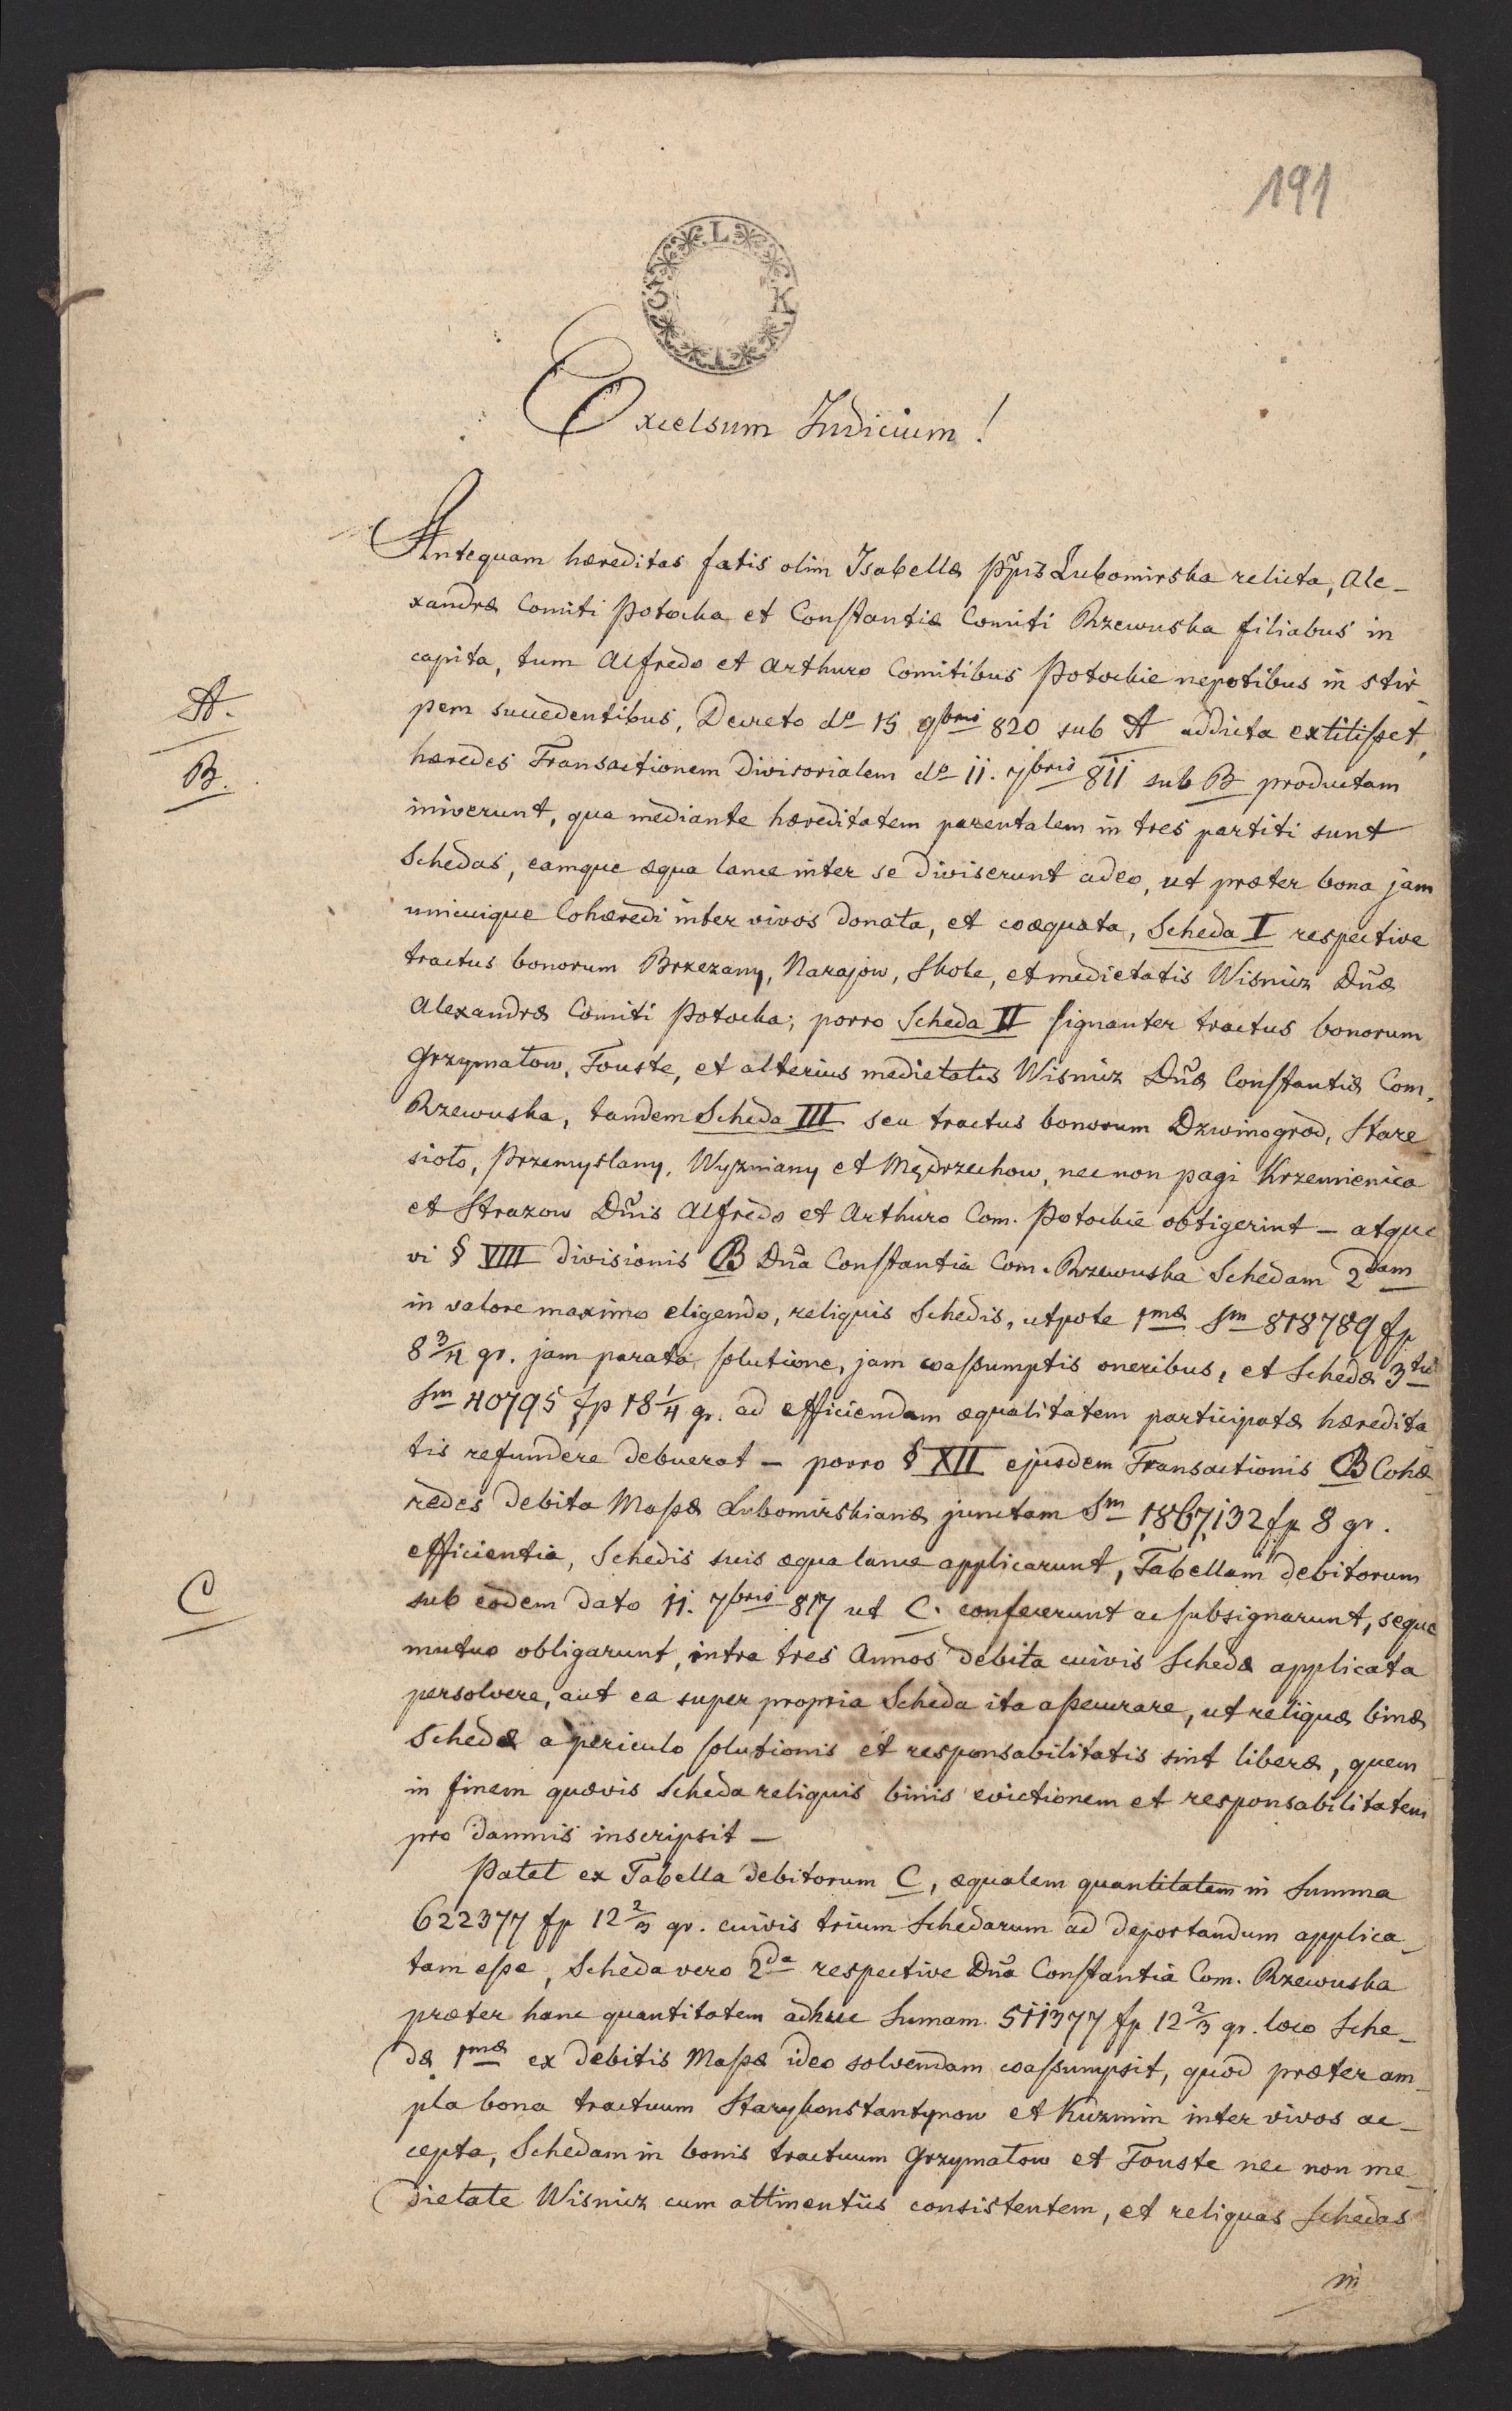 191
L
3 K
Excelsum Judicium!
Antequam hæreditas fatis olim Isabellæ Ppis Lubomirska relicta, Ale-
xandræ Comiti Potocka et Constantiæ Comiti Rzewuska filiabus in
capita, tum Alfredo et Arthuro Comitibus Potockie nepotibus in stir
A.
pem succedentibus, Decreto do 15 9bris 820 sub A addicta extitisset,
B.
hæredes Transactionem Divisorialem do 11. 7bris 811 sub B productam
iniverunt, qua mediante hæreditatem parentalem in tres partiti sunt
Schedas, eamque æqua lance inter se diviserunt adeo, ut præter bona jam
unicuique Cohæredi inter vivos donata, et coæquata, Scheda I respective
tractus bonorum Brzezany, Narajow, Skole, et medietatis Wisnicz Dnæ
Alexandræ Comiti Potocka; porro Scheda II signanter tractus bonorum
Grzymałow, Touste, et alterius medietatis Wisnicz Dnæ Constantiæ Com.
Rzewuska, tandem Scheda III seu tractus bonorum Dzwinogrod, Stare
sioło, Przemyslany, Wyzniany et Mędrzechow, nec non pagi Krzemienica
et Strazow Dnis Alfredo et Arthuro Com. Potockie obtigerint – atque
vi § VIII divisionis B Dna Constantia Com. Rzewuska Schedam 2dam
in valore maximo eligendo, reliquis Schedis, utpote 1mæ Sm 818789 fp
8 3/4 gr. jam parata solutione, jam coassumptis oneribus, et Schedæ 3tiæ
Sm 40795 fp 18 1/4 gr. ad efficiendam æqualitatem participatæ hæredita
tis refundere debuerat – porro § XII ejusdem Transactionis B Cohæ
redes debita Massæ Lubomirskianæ junctam Sm 1,867,132 fp 8 gr.
efficientia, Schedis suis æqua lance applicarunt, Tabellam debitorum
C
sub eodem dato 11. 7bris 817 ut C. confecerunt ac subsignarunt, seque
mutuo obligarunt, intra tres Annos debita cuivis Schedæ applicata
persolvere, aut ea super propria Scheda ita assecurare, ut reliquæ binæ
Schedæ a periculo solutionis et responsabilitatis sint liberæ, quem
in finem quævis Scheda reliquis binis evictionem et responsabilitatem
pro damnis inscripsit –
Patet ex Tabella debitorum C, æqualem quantitatem in Summa
622377 fp 12 2/3 gr. cuivis trium Schedarum ad deportandum applica-
tam esse, Scheda vero 2da respective Dna Constantia Com. Rzewuska
præter hanc quantitatem adhuc Sumam 511377 fp 12 2/3 gr. loco Sche-
dæ 1mæ ex debitis Massæ ideo solvendam coassumpsit, quod præter am-
pla bona tractuum Starykonstantynow et Kuzmin inter vivos ac-
cepta, Schedam in bonis tractuum Grzymałow et Touste nec non me
dietate Wisnicz cum attinentiis consistentem, et reliquas Schedas
in